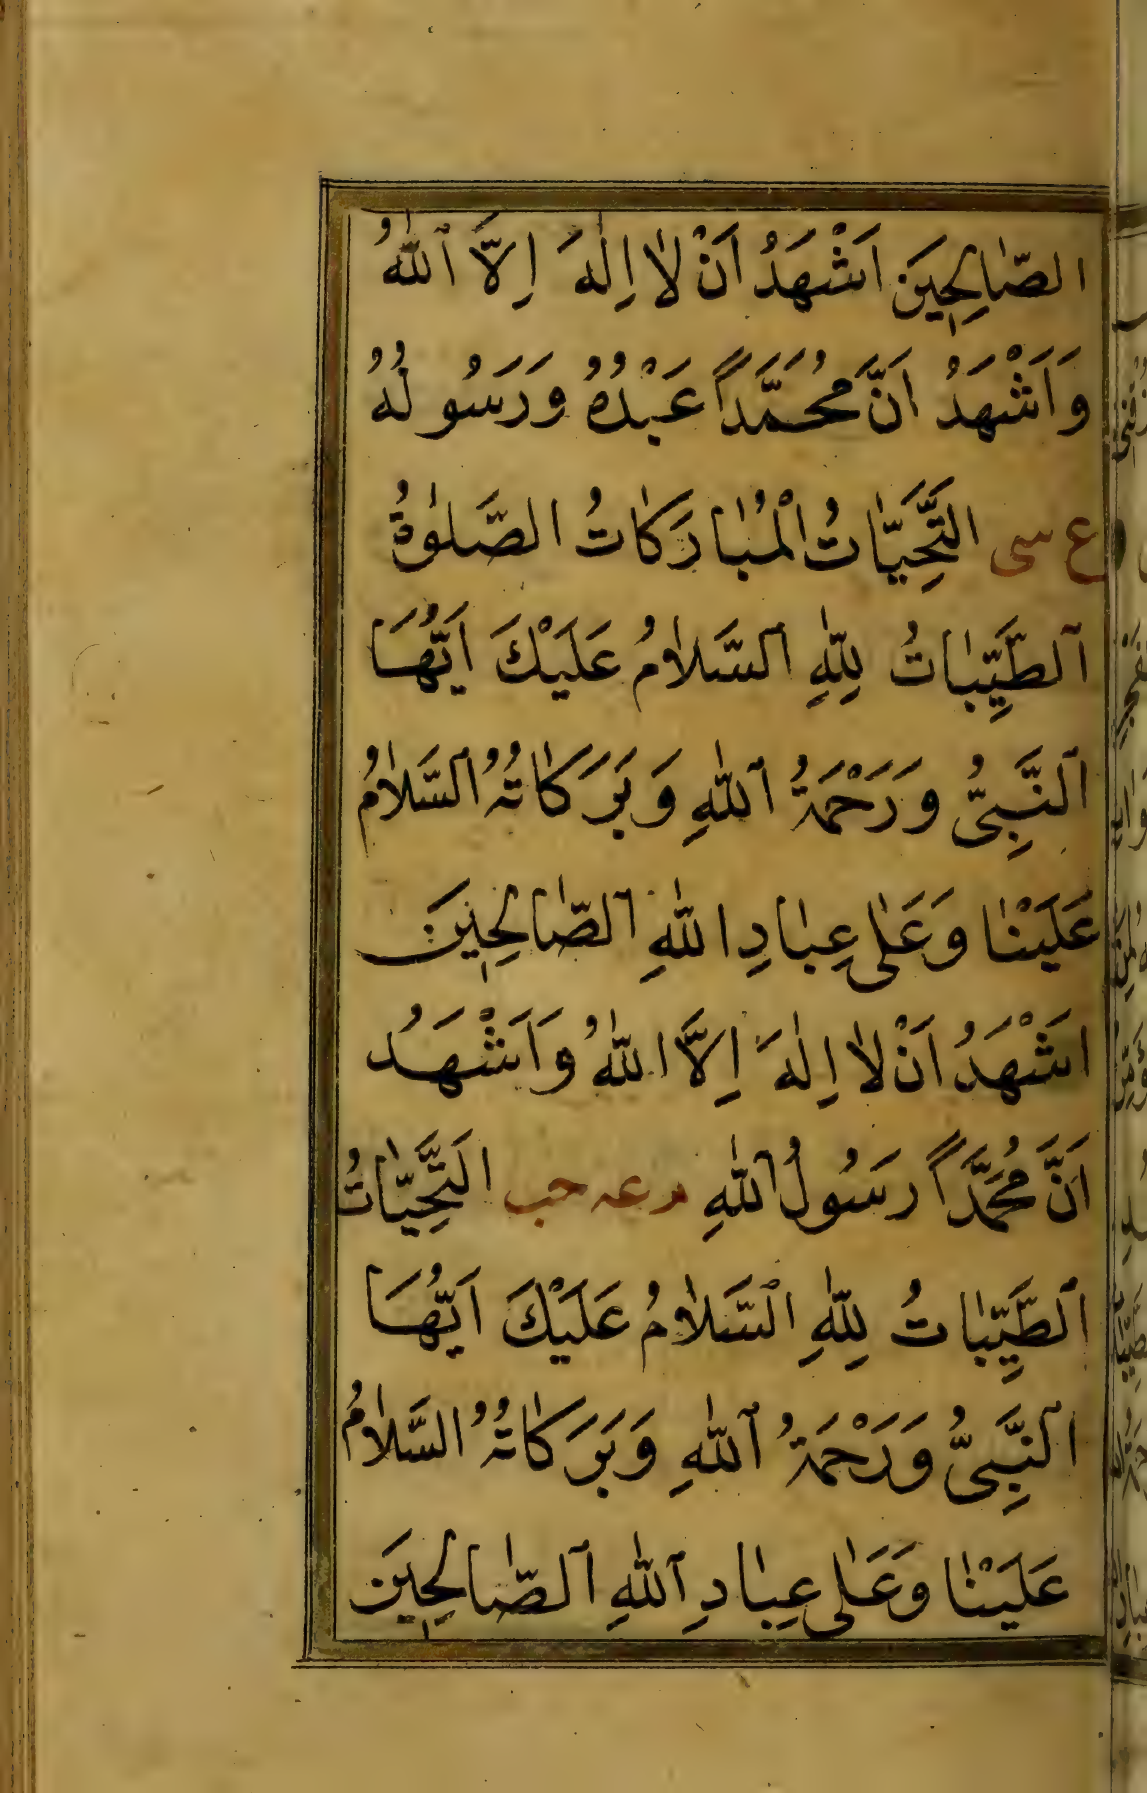 الصَّالِحِينَ اَشْهَدُ اَنْ لَا اِلٰهَ اِلَّا اللّٰهُ
وَاَشْهَدُ اَنَّ مُحَمَّدًا عَبْدُهُ وَرَسُولُهُ
ع سى التَّحِيَّاتُ الْمُبَارَكَاتُ الصَّلٰوةُ
الطَّيِّبَاتُ لِلّٰهِ السَّلَامُ عَلَيْكَ اَيُّهَا
النَّبِىُّ وَرَحْمَةُ اللّٰهِ وَبَرَكَاتُهُ السَّلَامُ
عَلَيْنَا وَعَلٰى عِبَادِ اللّٰهِ الصَّالِحِينَ
اَشْهَدُ اَنْ لَا اِلٰهَ اِلَّا اللّٰهُ وَاَشْهَدُ
اَنَّ مُحَمَّدًا رَسُولُ اللّٰهِ م عه حب التَّحِيَّاتُ
الطَّيِّبَاتُ لِلّٰهِ السَّلَامُ عَلَيْكَ اَيُّهَا
النَّبِىُّ وَرَحْمَةُ اللّٰهِ وَبَرَكَاتُهُ السَّلَامُ
عَلَيْنَا وَعَلٰى عِبَادِ اللّٰهِ الصَّالِحِينَ